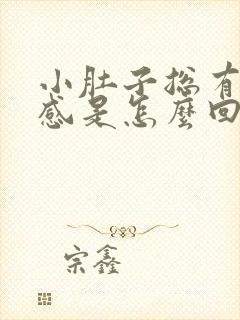 小肚子总有
感是怎麼回
宗鑫